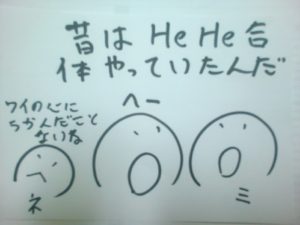 昔は HeHe合
体やっていたんだ
ワイの心に
ちかんだこと
ないね
へー
ネ
ミ